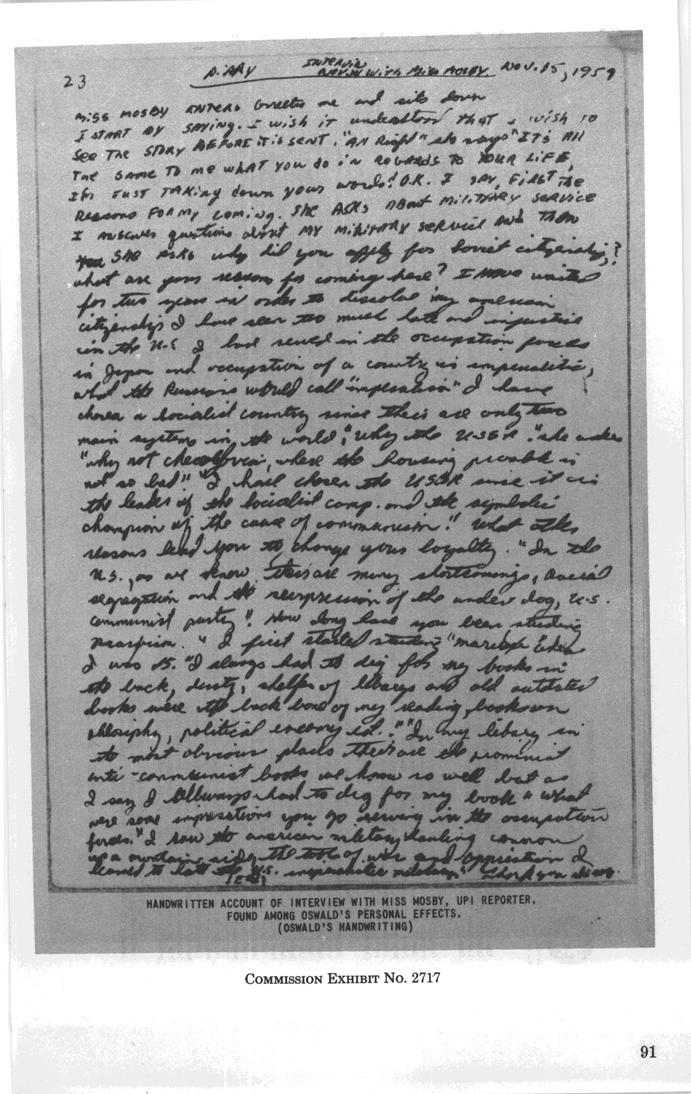 23
DiARY INTERVIEW With Miss MOSBY Nov. 15, 1959
Miss MOSBY ENTERS Greets me and sits down
I START BY SAYING. I wish it understood THAT I wish TO
SEE THE STORY BEFORE IT iS SENT. "All Right" she says "IT'S All
THE SAME TO me WHAT YOU do in REGARDS TO YOUR LiFE,
I'm JUST TAKing down your words" O.K. I SAY, FiRST THE
REASONS FOR MY Coming. SHE ASKS ABOUT MiliTARY SERVICE
I ANSWER questions about MY MiliTARY SERViCE AND THEN
SHE ASKS why did you apply for Soviet citizenship?
what are your reasons for coming here? I have waited
for two years in order to dissolve my american
citizenship I have seen too much hate and injustice
in the U.S I had served in the occupation forces
in Japan and occupation of a country is imperialitic,
what the Russians would call "imperalism" I have
chosen a Socialist country since their are only two
main systems in the world", "Why the USSR" she
"why not where the housing is
not so bad" "I have chosen the USSR since it is
the leader of the Socialist camp. and the symbolic
champion of the cause of communism." What other
reasons lead you to change your loyalty. "In the
U.S., as we know, their are many shortcomings, racial
segregation and the of the under dog, U.S.
communist party". How long have you been
" I first started "marxism" when
I was 15. "I always had to dig for my books in
the back, dusty, shelfes of and old outdated
books were the back bone of my reading, books on
political economy" "In my in
the most obvious places their are the
anti-communist books we know so well but as
I say I allways had to dig for my book" What
were some impressions you serving in the occupation
forces. "I saw the american military cannon
up a mountain side, the of war and I
to hate the U.S. military"
HANDWRITTEN ACCOUNT OF INTERVIEW WITH MISS MOSBY, UPI REPORTER,
FOUND AMONG OSWALD'S PERSONAL EFFECTS.
(OSWALD'S HANDWRITING)
COMMISSION EXHIBIT NO. 2717
91